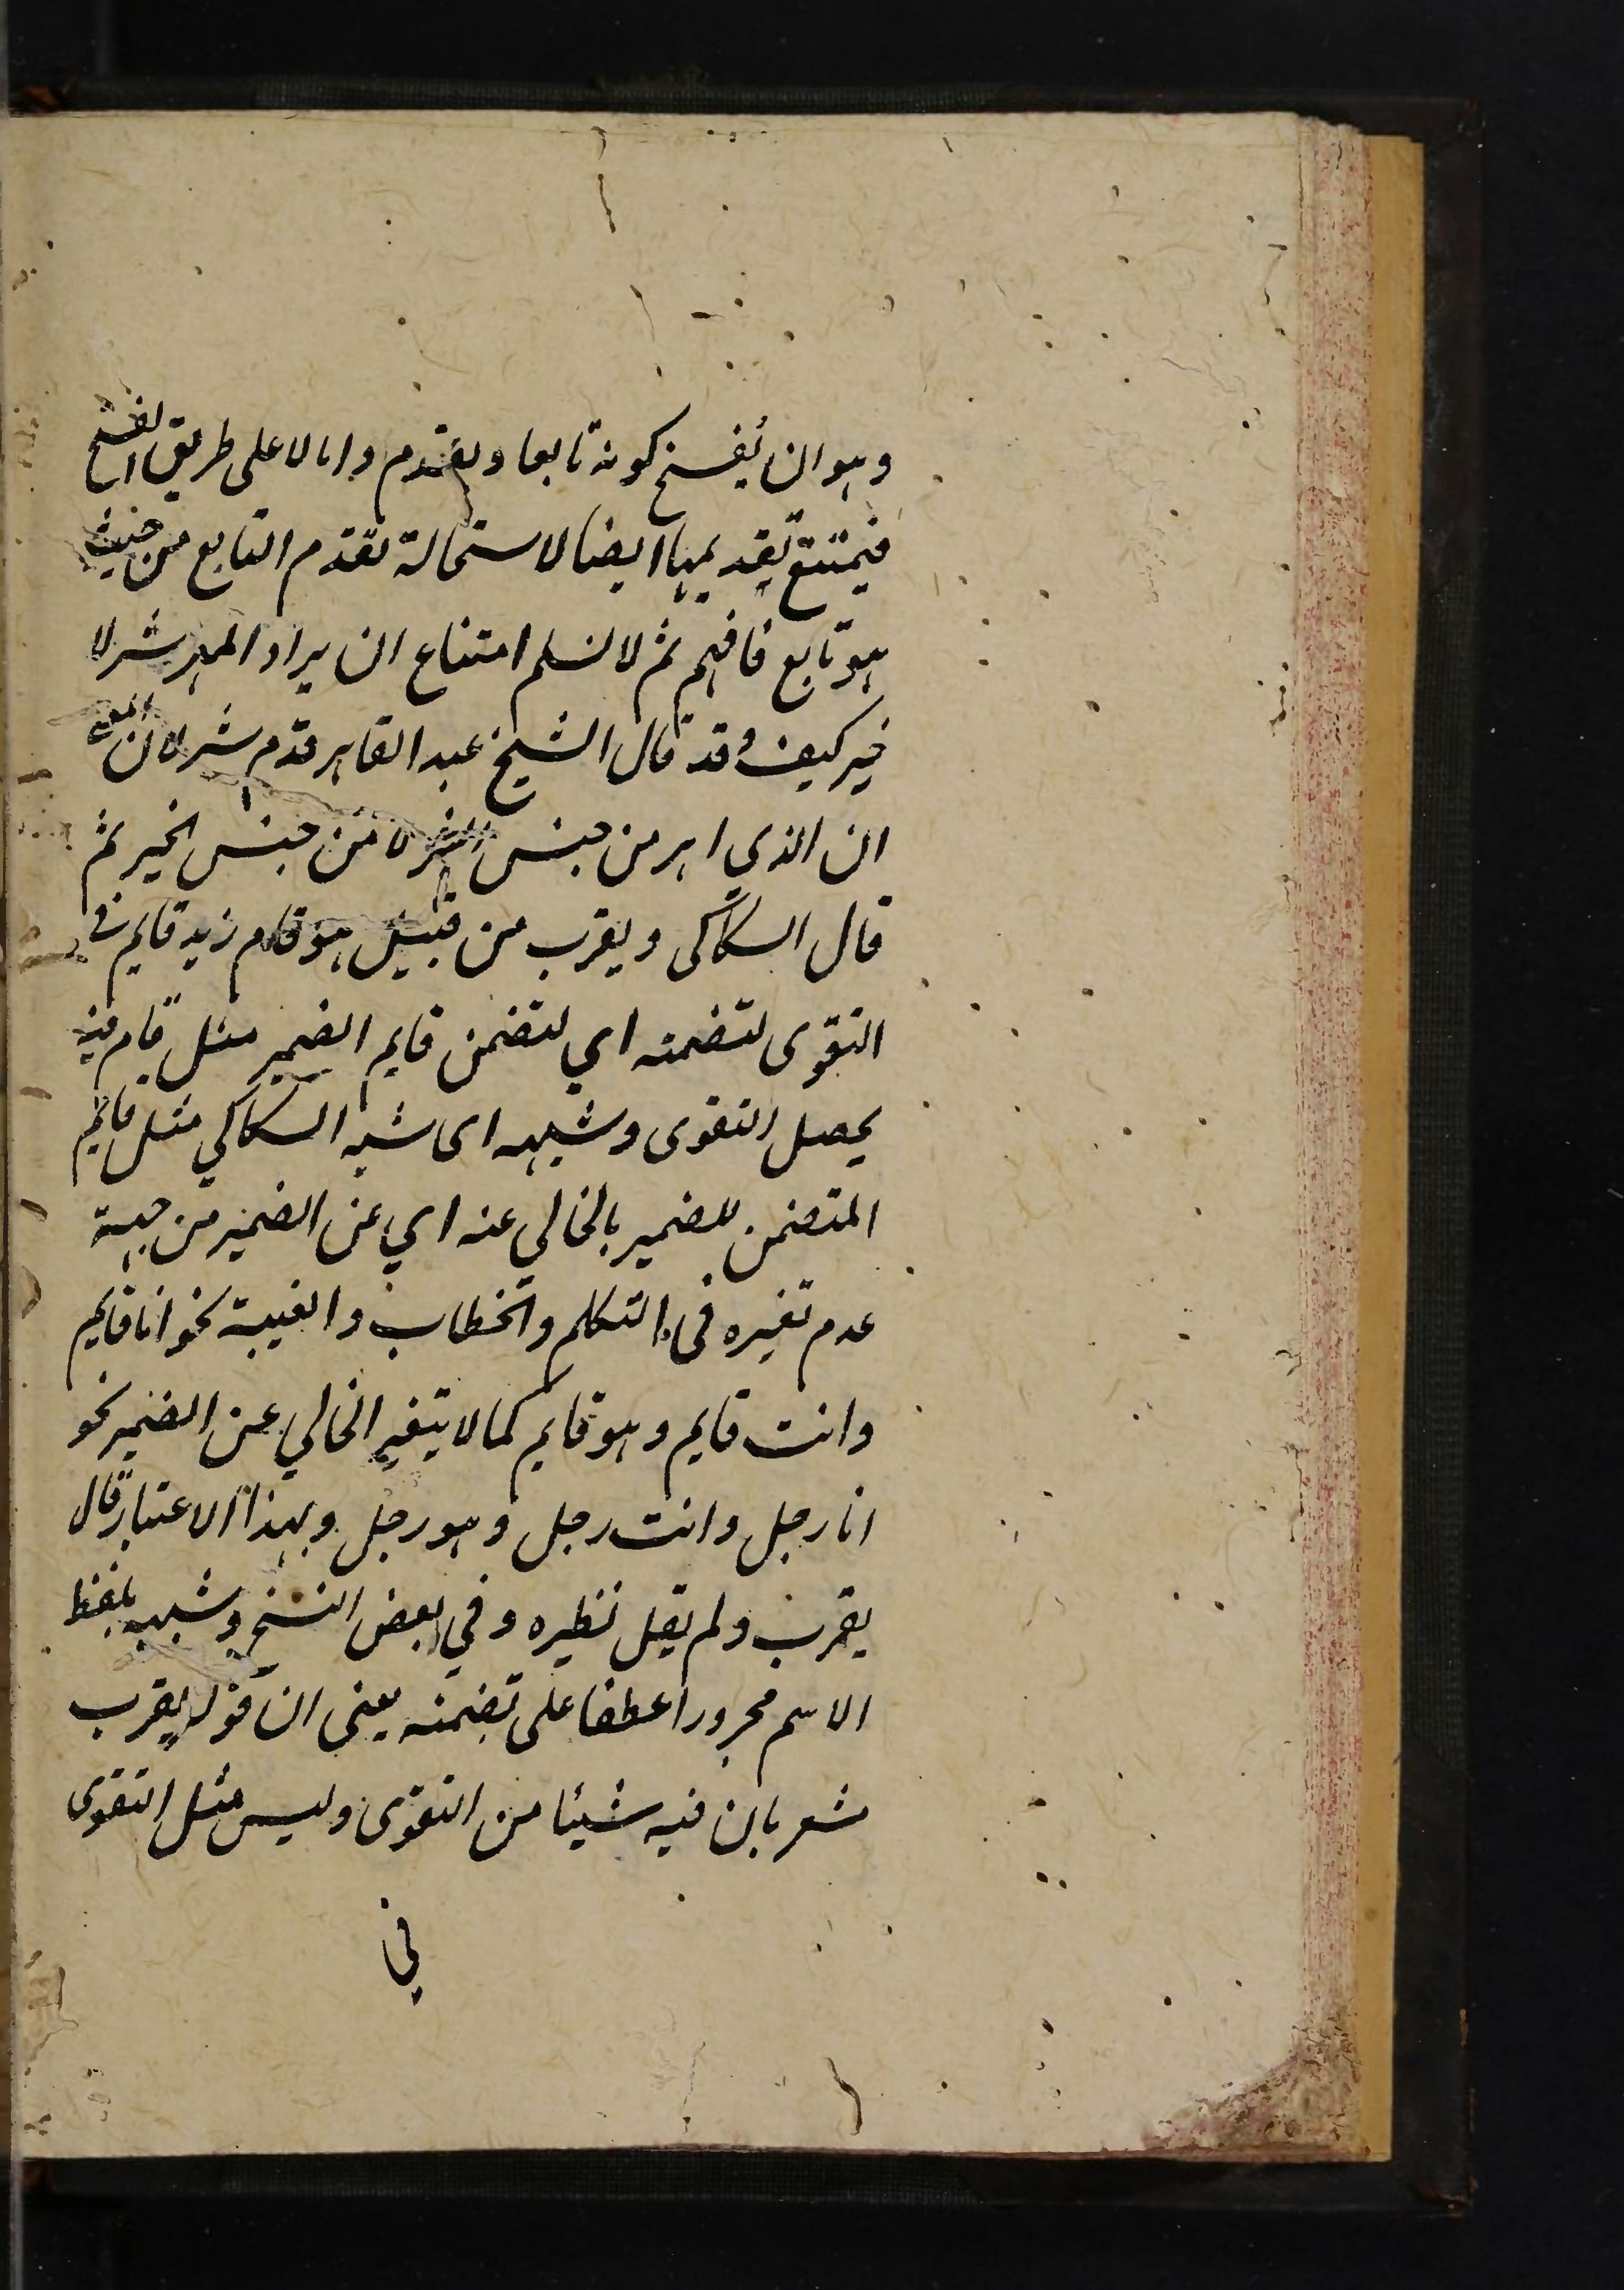 وهو ان يفسخ كونه تابعا ويقدم واما لا على طريق الفسخ
فيمتنع تقديمها ايضا لاستحالة تقدم التابع من حيث
هو تابع فافهم ثم لا نسلم امتناع ان يراد المهر شر لا
خير كيف وقد قال الشيخ عبد القاهر قدم شر لان المعنى
ان الذي اهر من جنس الشر لا من جنس الخير ثم
قال السكاكى ويقرب من قبيل هو قام زيد قايم في
التقوى لتضمنه اي لتضمن قايم الضمير مثل قام فبه
يحصل التقوى وشبهه اى شبه السكاكي مثل قايم
المتضمن للضمير بالخالى عنه اي عن الضمير من جهة
عدم تغيره فى التكلم والخطاب والغيبة نحو انا قايم
وانت قايم وهو قايم كما لا يتغير الخالي عن الضمير نحو
انا رجل وانت رجل وهو رجل وبهذا الاعتبار قال
يقرب ولم يقل نظيره وفي بعض النسخ وشبهه بلفظ
الاسم مجرورا عطفا على تضمنه يعنى ان قوله يقرب
مشعر بان فيه شيئا من التقوى وليس مثل التقوى
في